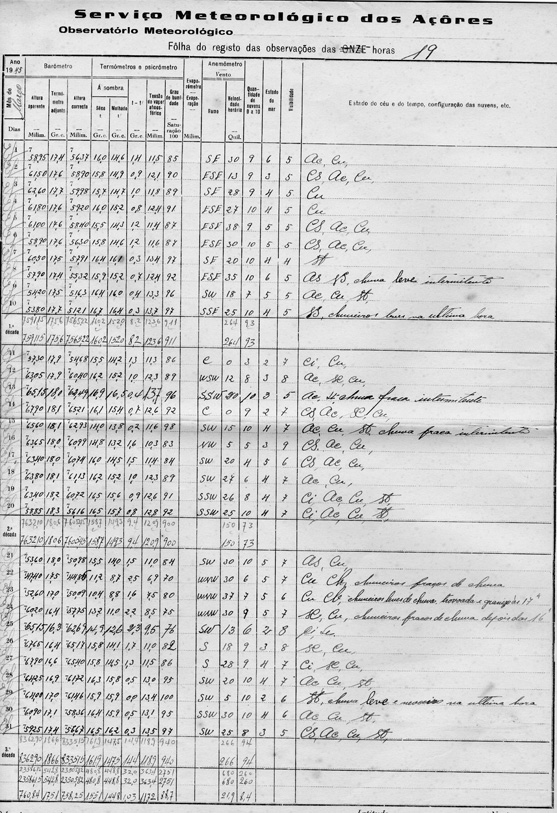 Serviço Meteorológico dos Açôres
Observatório Meteorológico
Fôlha do registo das observações das ONZE horas 19
Ano 1945 Barómetro Termómetros e psicrómetro Anemómetro
Mês de Março Altura aparente Termómetro adjunto Altura corrente À sombra Tensão do vapor atmosférico Grau de humidade Evaporómetro Evaporação Vento Quantidade de nuvens 0 a 10 Estado do mar Visibilidade Estado do céu e do tempo, configuração das nuvens, etc.
Sêco Molhado Rumo Velocidade horária
Dias Milim. Gr. c. Milim. Gr. c. Gr. c. Gr. c. Milim. Saturação 100 Milim. Quil.
1 17,4 16,0 14,6 1,4 11,5 85 SE 30 9 6 5 Ac, Cu,
2 6150 17,6 5890 15,8 14,9 0,9 12,1 90 ESE 13 9 3 5 CS, Ac, Cu,
3 17,7 15,7 14,7 1,0 11,8 89 SE 28 9 4 5 Cu
4 6180 17,6 5920 16,0 15,2 0,8 12,4 91 ESE 27 10 4 5 Cu,
5 6100 17,6 5840 15,5 14,3 1,2 11,4 87 ESE 38 9 5 5 CS, Ac, Cu,
6 5890 17,6 5630 15,8 14,6 1,2 11,6 87 ESE 30 10 5 5 CS, Ac, Cu,
7 17,7 0,3 13,4 97 SE 20 10 4 4 St,
8 17,4 15,9 15,2 0,7 12,4 92 ESE 35 10 6 5 AS NS, chuva leve intermitente
9 5420 17,5 5163 16,4 16,0 0,4 13,3 96 SW 18 7 5 5 Ac, Cu, St,
10 5380 17,7 5121 16,7 16,4 0,3 13,7 97 SSE 25 10 4 5 NS, chuveiros leves na ultima hora
1.ª década 264 93
264 93
11 5730 17,9 5468 15,5 14,2 1,3 11,3 86 C 0 3 2 7 Ci, Cu,
12 6305 17,9 6040 16,2 15,2 1,0 12,3 89 WSW 12 8 3 8 Ac, SC, Cu,
13 18,0 16,9 16,5 0,4 13,7 96 SSW 20 10 3 5 Ac, St chuva fraca intermitente
14 18,1 6521 16,1 15,4 0,7 12,6 92 C 0 9 2 7 CS Ac, SC, Cu,
15 6560 18,1 6293 14,0 13,8 0,2 11,6 98 SW 15 10 4 7 Ac, Cu, St, chuva fraca intermitente
16 6365 18,0 14,8 13,2 1,6 10,3 83 NW 5 5 3 9 CS, Ac, Cu,
17 6340 18,0 16,0 14,5 1,5 11,4 84 SW 20 4 5 6 CS, Ac, Cu,
18 6380 18,1 6113 16,2 15,2 1,0 12,3 89 SW 27 6 4 7 Ac, Cu,
19 6340 18,2 6072 16,5 15,6 0,9 12,6 91 SSW 26 8 4 7 Ci, Ac, Cu, St,
20 18,3 5616 16,5 15,7 0,8 12,8 92 SSW 25 10 4 7 Ci, Ac, Cu, St,
2.ª década 150 73
150 73
21 5360 18,0 5098 15,5 14,0 1,5 11,0 84 SW 30 10 5 7 AS, Cu,
22 17,5 11,2 8,7 2,5 6,9 70 WNW 30 6 5 7 Cu Cb, chuveiros fracos de chuva
23 5260 17,0 5009 10,4 8,8 1,6 7,5 80 WNW 37 7 5 6 Cu Cb, chuveiros leves de chuva, trovoada e granizo às 17 h
24 6020 16,4 5775 13,2 11,0 2,2 8,5 75 WNW 30 9 5 7 SC, Cu, chuveiros fracos de chuva depois das 16 h
25 16,3 2,3 9,5 76 SW 13 6 2 8
26 16,4 6517 15,8 14,1 1,7 11,0 82 S 18 9 3 8 SC, Cu,
27 6790 16,6 6540 15,8 14,5 1,3 11,5 86 S 28 9 4 7 Ci, SC, Cu,
28 6425 16,9 6172 16,3 15,8 0,5 13,0 95 SW 20 10 4 7 Ac, Cu, St,
29 17,0 15,9 15,9 0,0 13,4 100 SW 5 10 2 6 St, chuva leve e nevoeiro na ultima hora
30 17,1 5836 16,4 15,9 0,5 13,1 95 SSW 30 10 4 6 Ac, Cu, St,
31 5925 17,4 5667 16,5 16,2 0,3 13,5 97 SW 25 8 3 5 CS, Ac, Cu, St,
3.ª década 266 94
266 94
680 260
680 260